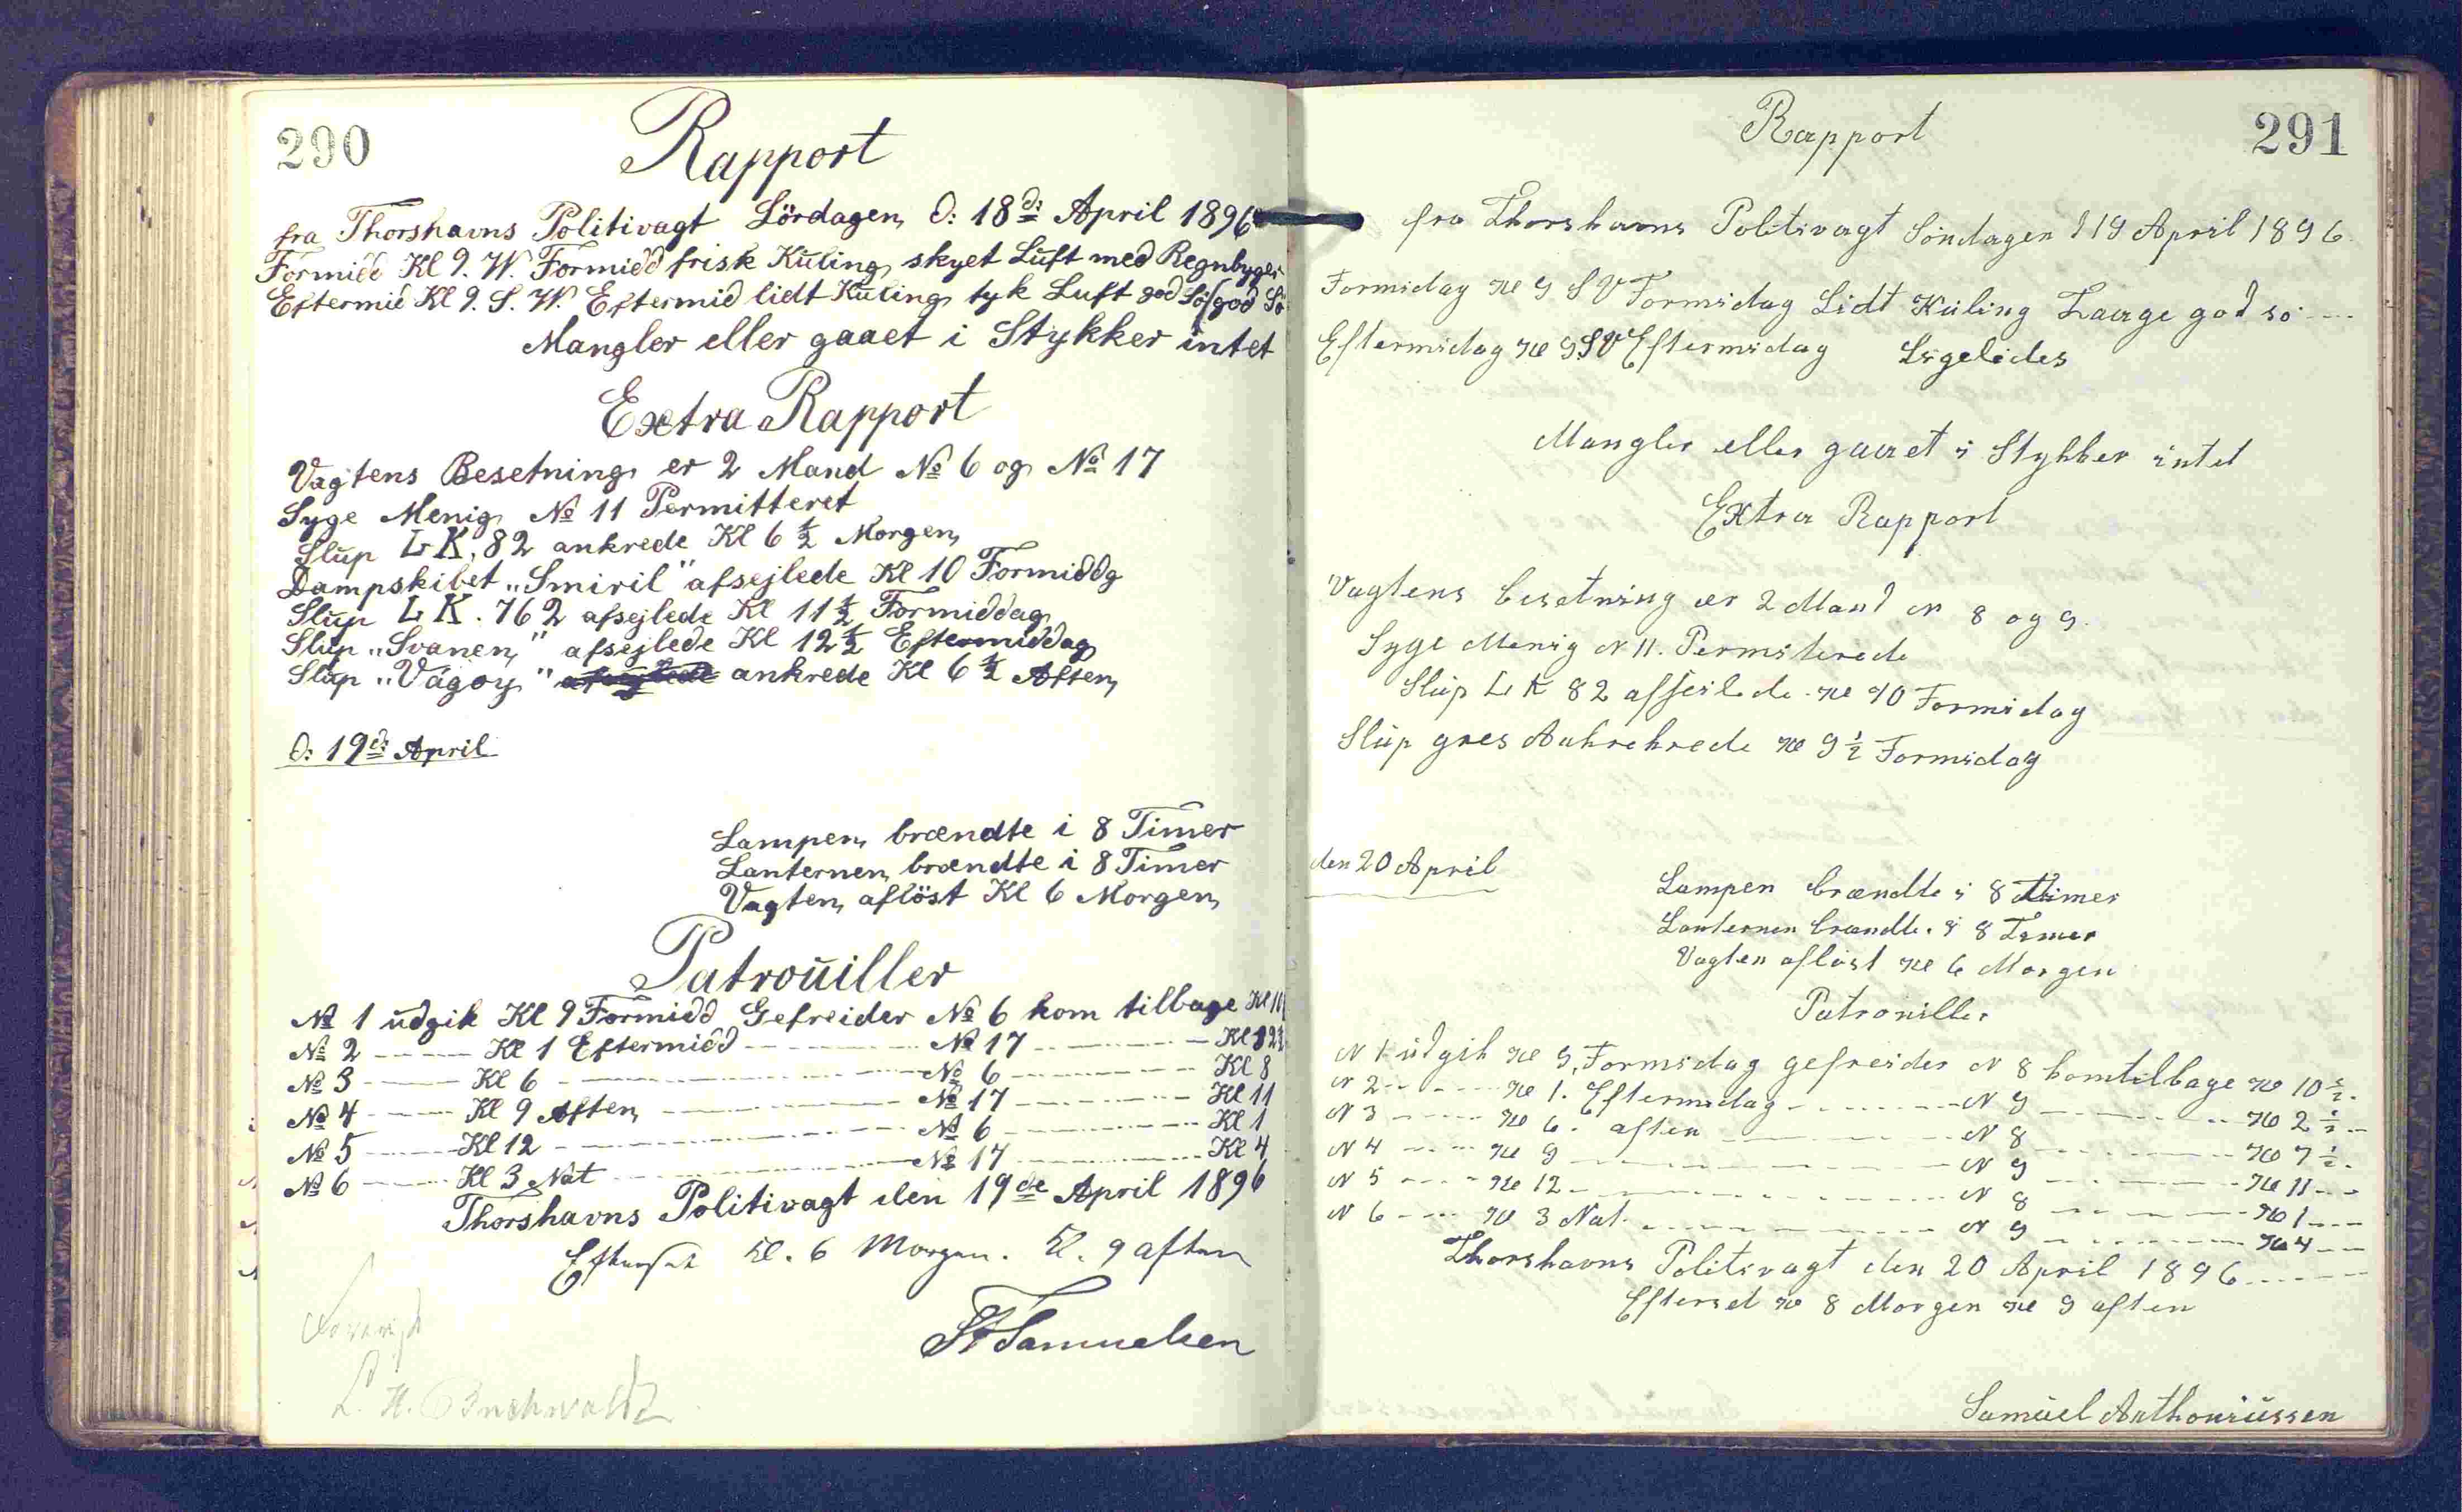 290
Rapport
fra Thorshavns Politivagt Lördagen, d: 18d: April 1896
Formidd Kl 9. W. Formidd frisk Kuling, skyet Luft med Regnbyger
Eftermid Kl 9. S. W. Eftermid lidt Kuling, tyk Luft god Sö god Sö
Mangler eller gaaet i Stykker intet
Extra Rapport
Vagtens Besetning er 2 Mand No 6 og No 17
Syge Menig No 11 Permitteret
Slup LK. 82 ankrede Kl 6 ½ Morgen
Dampskibet „Smiril" afsejlede Kl 10 Formiddg
Slup LK. 762 afsejlede Kl 11 ½ Formiddag
Slup „Svanen" afsejlede Kl 12 ½ Eftermiddag
Slup „Vágoy" afsejlede ankrede Kl 6 ½ Aften
d: 19d: April
Lampen brændte i 8 Timer
Lanternen brændte i 8 Timer
Vagten aflöst Kl 6 Morgen
Patrouiller
No 1 udgik Kl 9 Formidd Gefreider No 6 kom tilbage Kl 11
No 2 ---- Kl 1 Eftermidd ---- No 17 ---- Kl
No 3 ---- Kl 6 ---- No 6 ---- Kl 8
No 4 ---- Kl 9 Aften ---- No 17 ---- Kl 11
No 5 ---- Kl 12 ---- No 6 ---- Kl 1
No 6 ---- Kl 3 Nat ---- No 17 ---- Kl 4
Thorshavns Politivagt den 19de April 1896
Efterset Kl. 6 Morgen. Kl. 9 aften
Samuelsen
L. H. Buchwaldt
291
Rapport
fra Thorshavns Politivagt Söndagen d 19 April 1896.
Formidag Kl 9 SV Formidag Lidt Kuling Taage god sö ---
Eftermidag Kl 9 SV Eftermidag Ligeledes
Mangler eller gaaet i Stykker intet
Extra Rapport
Vagtens besetning er 2 Mand N 8 og 9.
Syge Menig N 11. Permiterede
Slup LK 82 afseilede Kl 10 Formidag
Slup gres Ankrekrede Kl 9 ½ Formidag
den 20 April
Lampen brændte i 8 Timer
Lanternen brændte i 8 Timer
Vagten aflöst Kl 6 Morgen
Patrouiller
N 1 udgik Kl 9, Formidag gefreider N 8 komtilbage Kl 10 ½.
N 2 ---- Kl 1. Eftermidag ---- N 9 ---- Kl 2 ½ -
N 3 ---- Kl 6. aften ---- N 8 ---- Kl 7 ½.
N 4 ---- Kl 9 ---- N 9 ---- Kl 11 ---
N 5 ---- Kl 12 ---- N 8 ---- Kl 1 ---
N 6 ---- Kl 3 Nat. ---- N 9 ---- Kl 4 ---
Thorshavns Politivagt den 20 April 1896 ----
Efterset Kl 8 Morgen Kl 9 aften
Samuel Anthoniussen